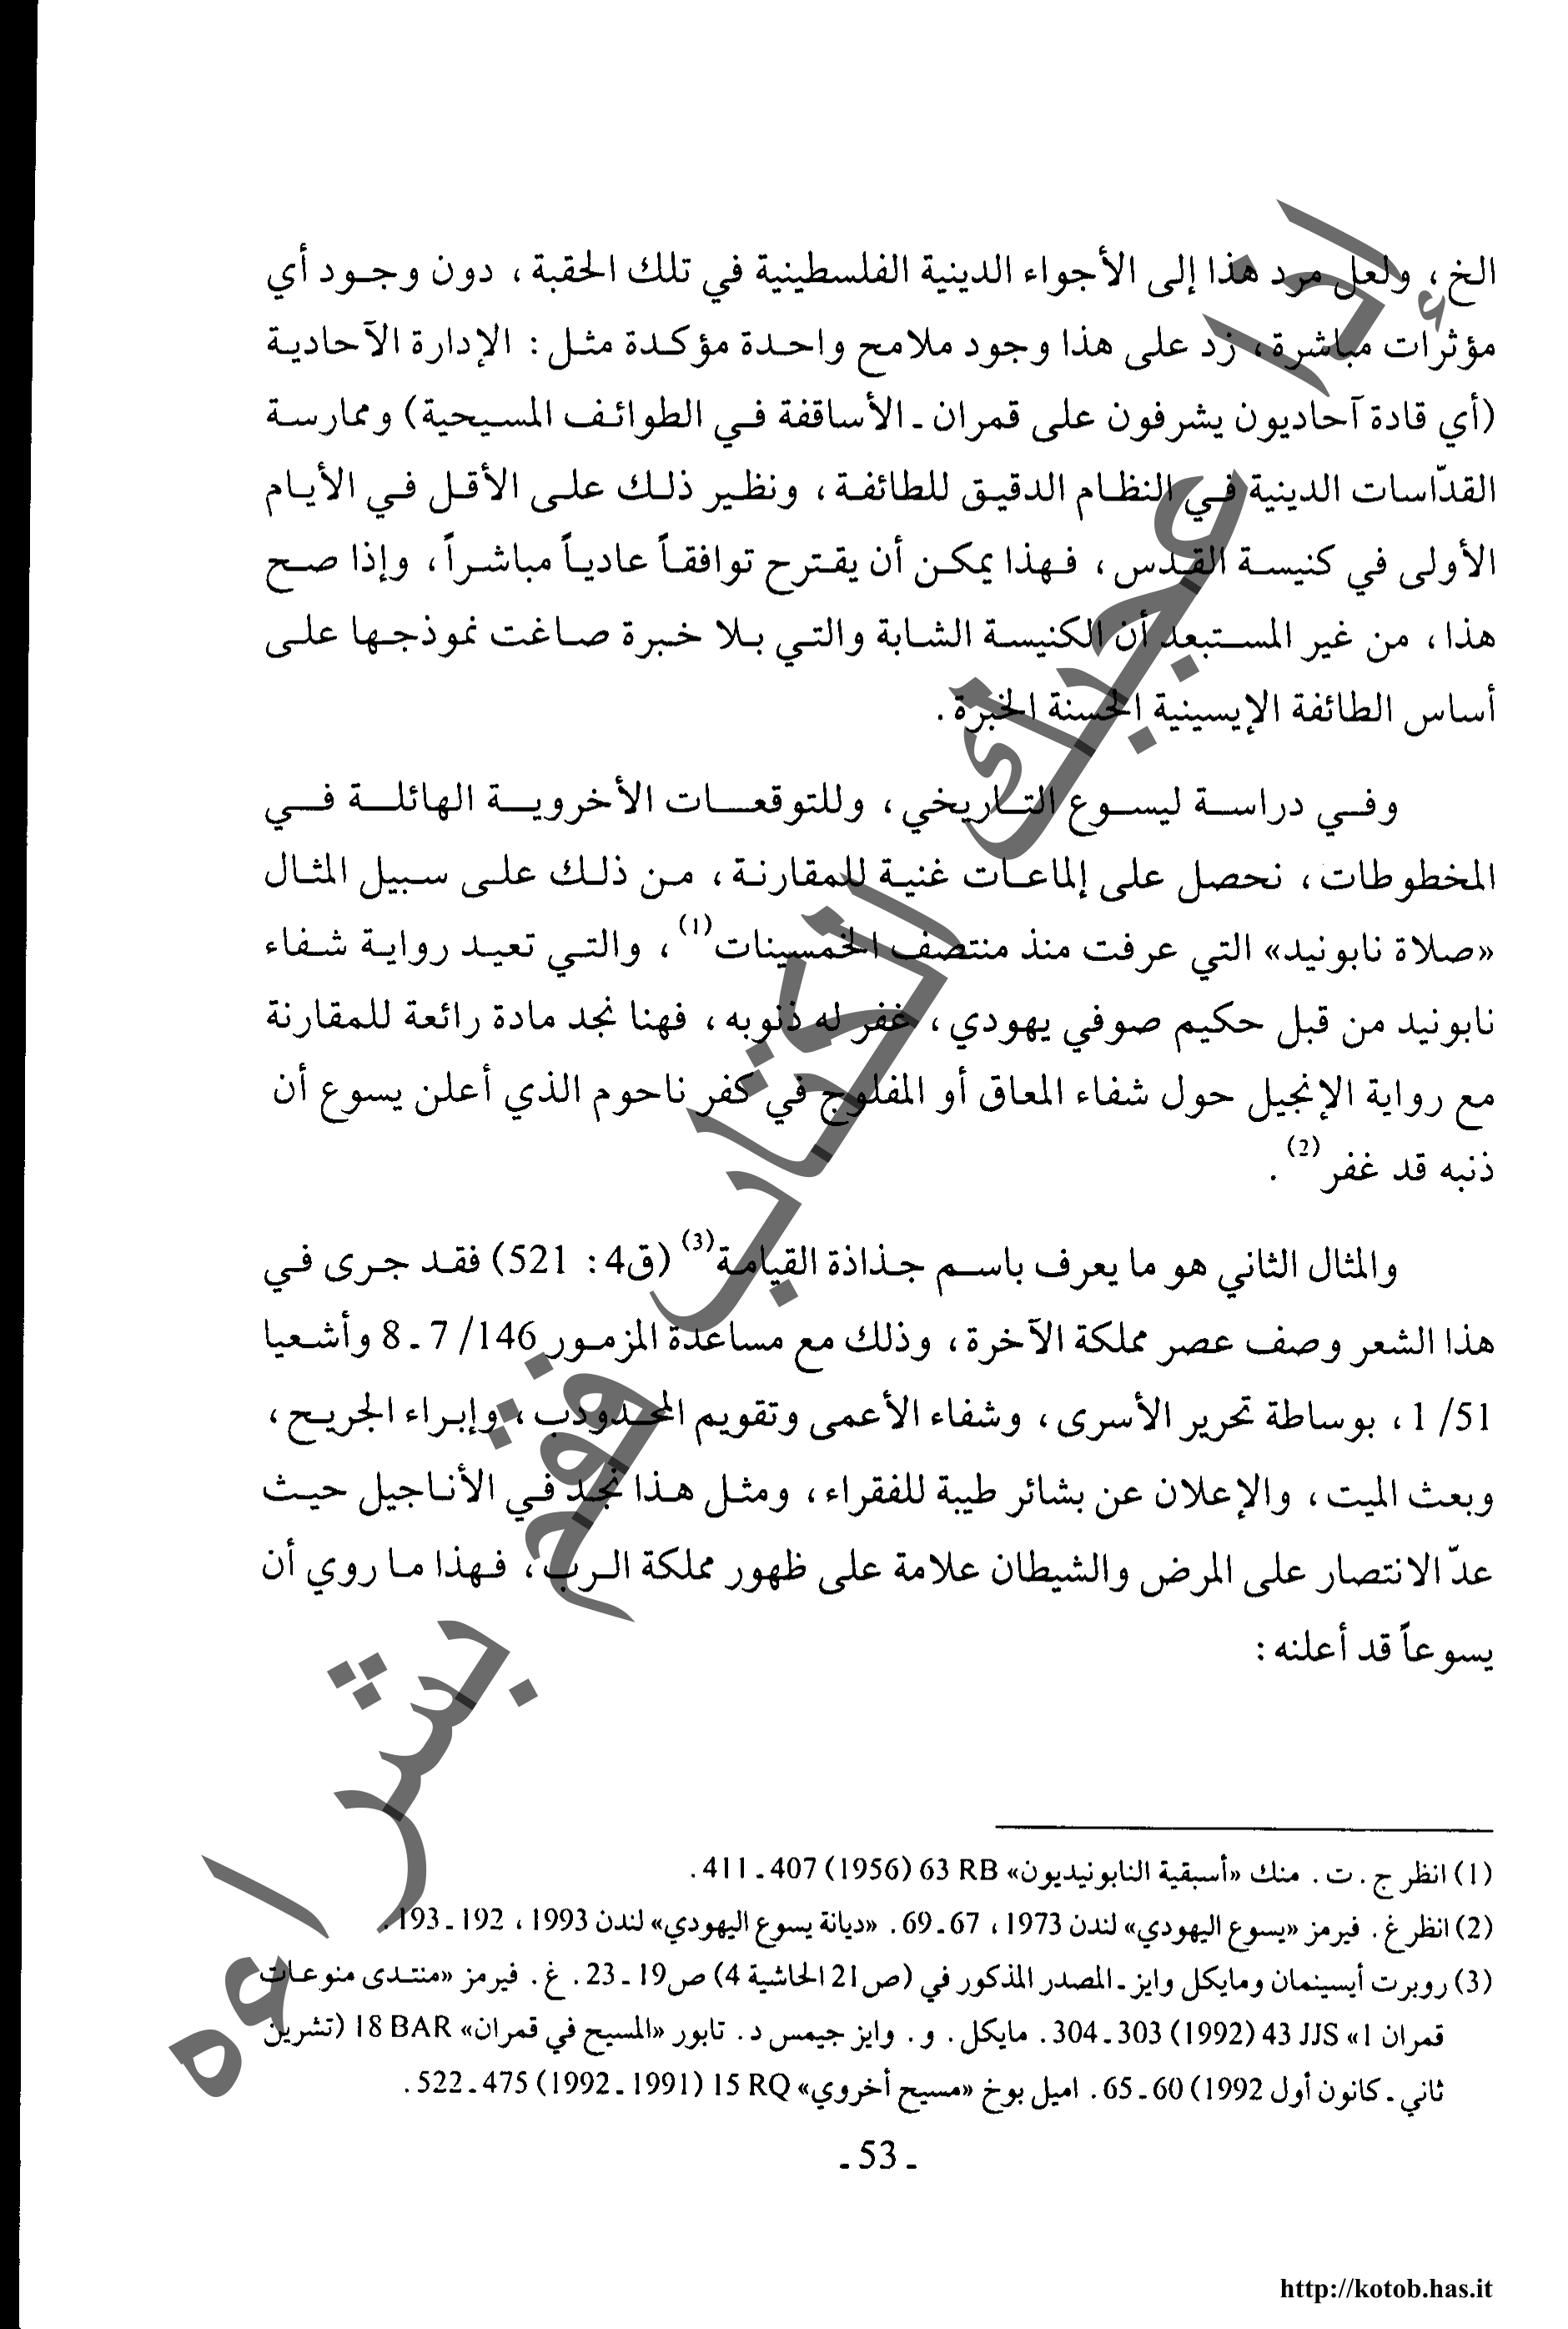 الخ، ولعل مرد هذا إلى الأجواء الدينية الفلسطينية في تلك الحقبة، دون وجود أي
مؤثرات مباشرة، زد على هذا وجود ملامح واحدة مؤكدة مثل: الإدارة الآحادية
(أي قادة آحاديون يشرفون على قمران ـ الأساقفة في الطوائف المسيحية) وممارسة
القدّاسات الدينية في النظام الدقيق للطائفة، ونظير ذلك على الأقل في الأيام
الأولى في كنيسة القدس، فهذا يمكن أن يقترح توافقاً عادياً مباشراً، وإذا صح
هذا، من غير المستبعد أن الكنيسة الشابة والتي بلا خبرة صاغت نموذجها على
أساس الطائفة الإيسينية الحسنة الخبرة.
وفي دراسة ليسوع التاريخي، وللتوقعات الأخروية الهائلة في
المخطوطات، نحصل على إلماعات غنية للمقارنة، من ذلك على سبيل المثال
«صلاة نابونيد» التي عرفت منذ منتصف الخمسينات(1)، والتي تعيد رواية شفاء
نابونيد من قبل حكيم صوفي يهودي، غفر له ذنوبه، فهنا نجد مادة رائعة للمقارنة
مع رواية الإنجيل حول شفاء المعاق أو المفلوج في كفر ناحوم الذي أعلن يسوع أن
ذنبه قد غفر(2).
والمثال الثاني هو ما يعرف باسم جذاذة القيامة(3) (ق4: 521) فقد جرى في
هذا الشعر وصف عصر مملكة الآخرة، وذلك مع مساعدة المزمور 146/ 7 ـ 8 وأشعيا
51/ 1، بوساطة تحرير الأسرى، وشفاء الأعمى وتقويم المحدودب، وإبراء الجريح،
وبعث الميت، والإعلان عن بشائر طيبة للفقراء، ومثل هذا نجد في الأناجيل حيث
عدّ الانتصار على المرض والشيطان علامة على ظهور مملكة الرب، فهذا ما روي أن
يسوعاً قد أعلنه:
(1) انظر ج. ت. منك «أسبقية النابونيديون» 63 RB (1956) 407 ـ 411.
(2) انظر غ. فيرمز «يسوع اليهودي» لندن 1973، 67 ـ 69. «ديانة يسوع اليهودي» لندن 1993، 192 ـ 193.
(3) روبرت أيسينمان ومايكل وايز ـ المصدر المذكور في (ص21 الحاشية 4) ص19 ـ 23. غ. فيرمز «منتدى منوعات
قمران 1» 43 JJS (1992) 303 ـ 304. مايكل. و. وايز جيمس د. تابور «المسيح في قمران» 18 BAR (تشرين
ثاني ـ كانون أول 1992) 60 ـ 65. اميل بوخ «مسيح أخروي» 15 RQ (1991 ـ 1992) 475 ـ 522.
ـ 53 ـ
إذا أعجبك الكتاب فقم بشراءه
http://kotob.has.it